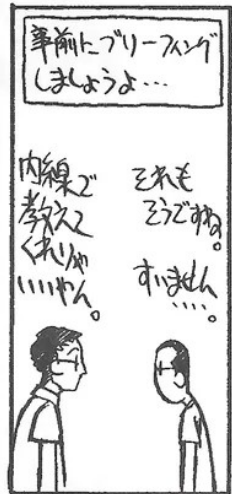 事前にブリーフィング
しましょうよ…
それも
そうですね。
すいません
‥‥。
内線で
教えて
くれりゃ
いいやん。